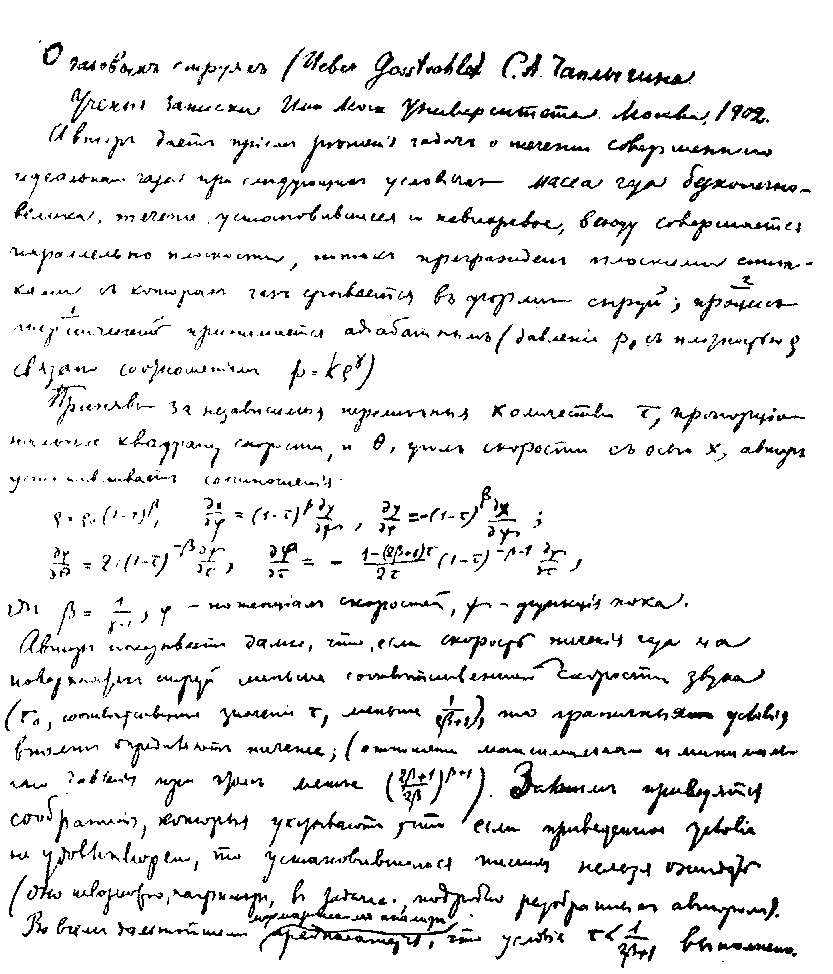 О газовыхъ струяхъ (Ueber Gasstrahlen) С.А. Чаплыгина
Ученыя Записки Имп Моск Университета. Москва, 1902.
Авторъ даетъ пріемъ рѣшенія задачъ о теченіи совершеннаго
идеальнаго газа при слѣдующихъ условіяхъ масса газа безконечно-
велика, теченіе установившееся и невихревое, всюду совершается
параллельно плоскости, потокъ прегражденъ плоскими стѣн-
ками съ которыхъ газъ срывается въ формѣ струй; процессъ
термическій принимается адіабатнымъ (давленіе p, съ плотностью ρ
связано соотношеніемъ p = kρ^γ)
Принявъ за независимыя перемѣнныя количества τ, пропорціо-
нальное квадрату скорости, и θ, уголъ скорости съ осью X, авторъ
устанавливаетъ соотношенія
ρ = ρ₀ (1-τ)^β, ∂x/∂φ = (1-τ)^β ∂y/∂ψ, ∂y/∂φ = -(1-τ)^β ∂x/∂ψ;
∂φ/∂θ = 2τ(1-τ)^-β ∂ψ/∂τ, ∂φ/∂τ = - 1-(2β+1)τ/2τ (1-τ)^-β-1 ∂ψ/∂θ,
гдѣ β = 1/γ-1, φ - потенціалъ скоростей, ψ - функція тока.
Авторъ показываетъ далѣе, что, если скорость теченія газа на
поверхности струй меньше соотвѣтственной скорости звука
(τ₀, соотвѣтственное значеніе τ, меньше 1/2β+1), то граничныя условія
вполнѣ опредѣляютъ теченіе; (отношеніе максимальнаго и минималь-
наго давленія при этомъ меньше (2β+1/2β)^β+1). Затѣмъ приводятся
соображенія, которыя указываютъ, что если приведенное условіе
не удовлетворено, то установившагося теченія нельзя ожидать
(оно невозможно, напримѣръ, въ задачѣ, подробно разобранной авторомъ).
Во всемъ дальнѣйшемъ предполагаетъ, что условіе τ < 1/2β+1 выполнено.